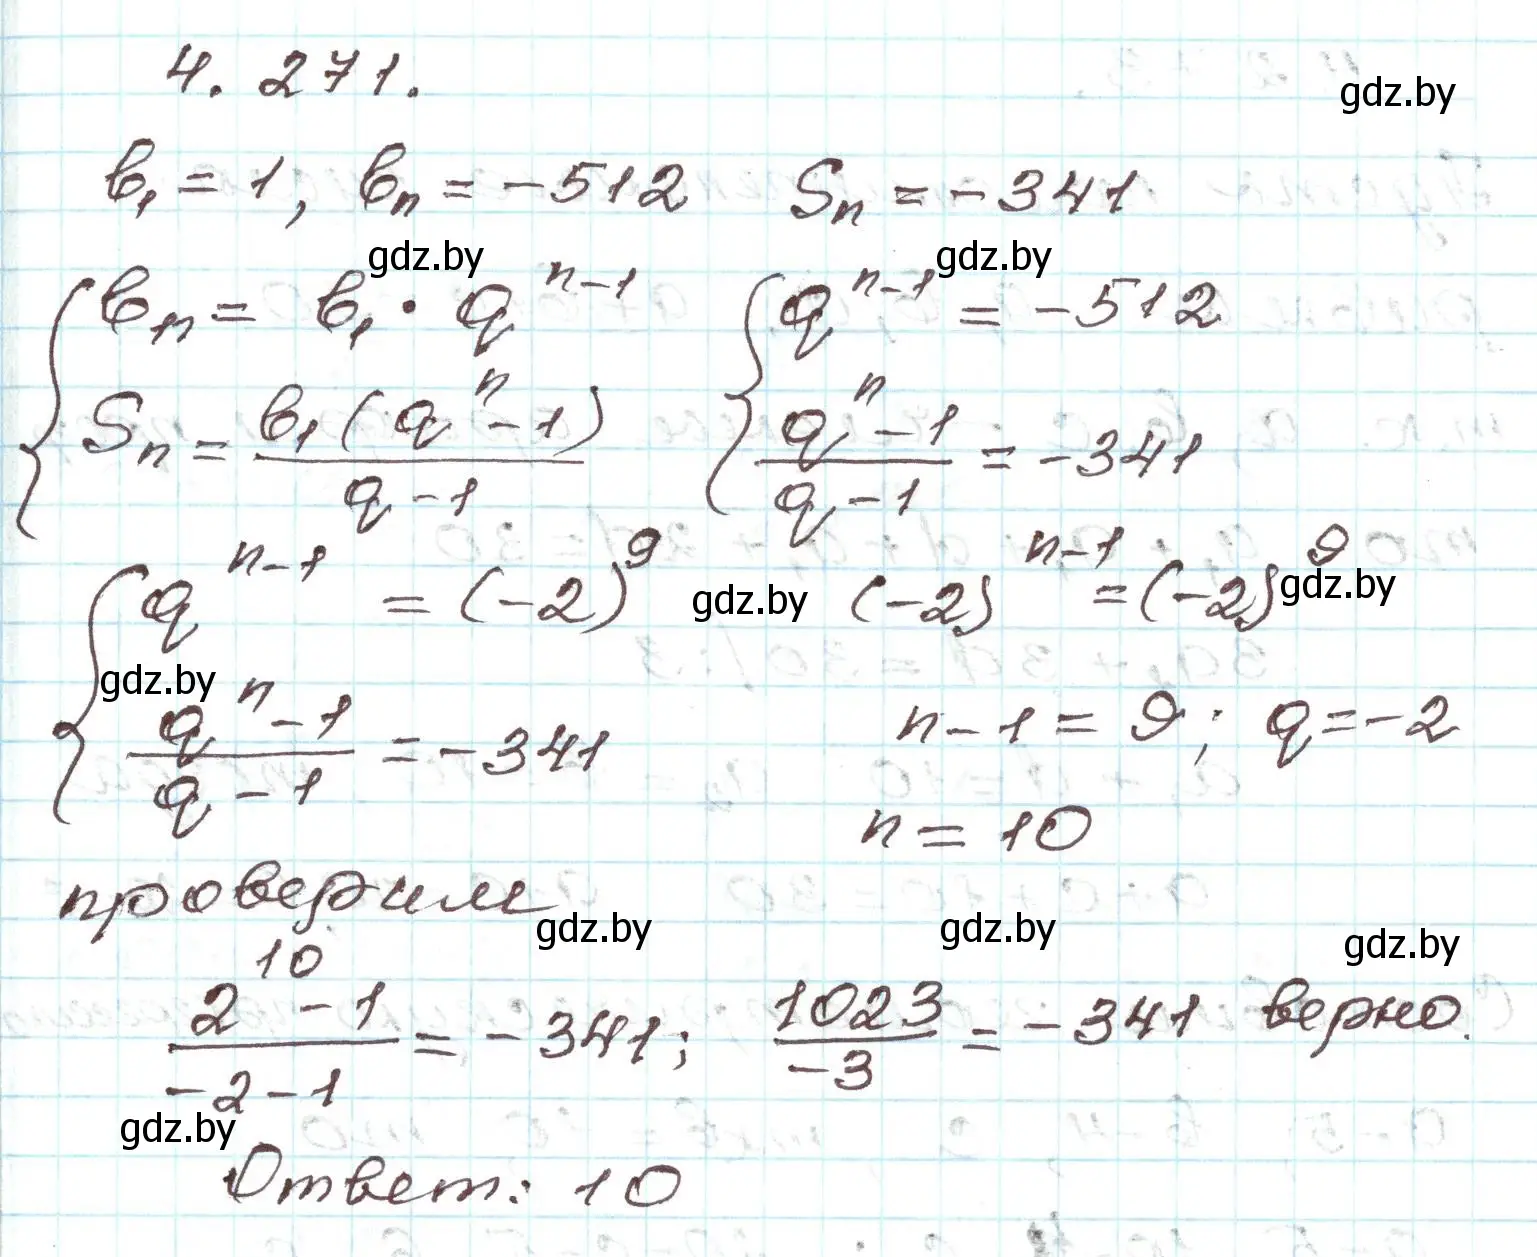 4. 271.
gdz.by
b₁ = 1, bₙ = -512 Sₙ = -341
gdz.by gdz.by
{ bₙ = b₁ · qⁿ⁻¹ { qⁿ⁻¹ = -512
Sₙ = b₁(qⁿ - 1) / (q - 1) (qⁿ - 1) / (q - 1) = -341
{ qⁿ⁻¹ = (-2)⁹ gdz.by (-2)ⁿ⁻¹ = (-2)⁹ gdz.by
gdz.by
(qⁿ - 1) / (q - 1) = -341 n - 1 = 9; q = -2
n = 10
проверим
gdz.by gdz.by gdz.by
(2¹⁰ - 1) / (-2 - 1) = -341; 1023 / -3 = -341 верно.
gdz.by
Ответ: 10